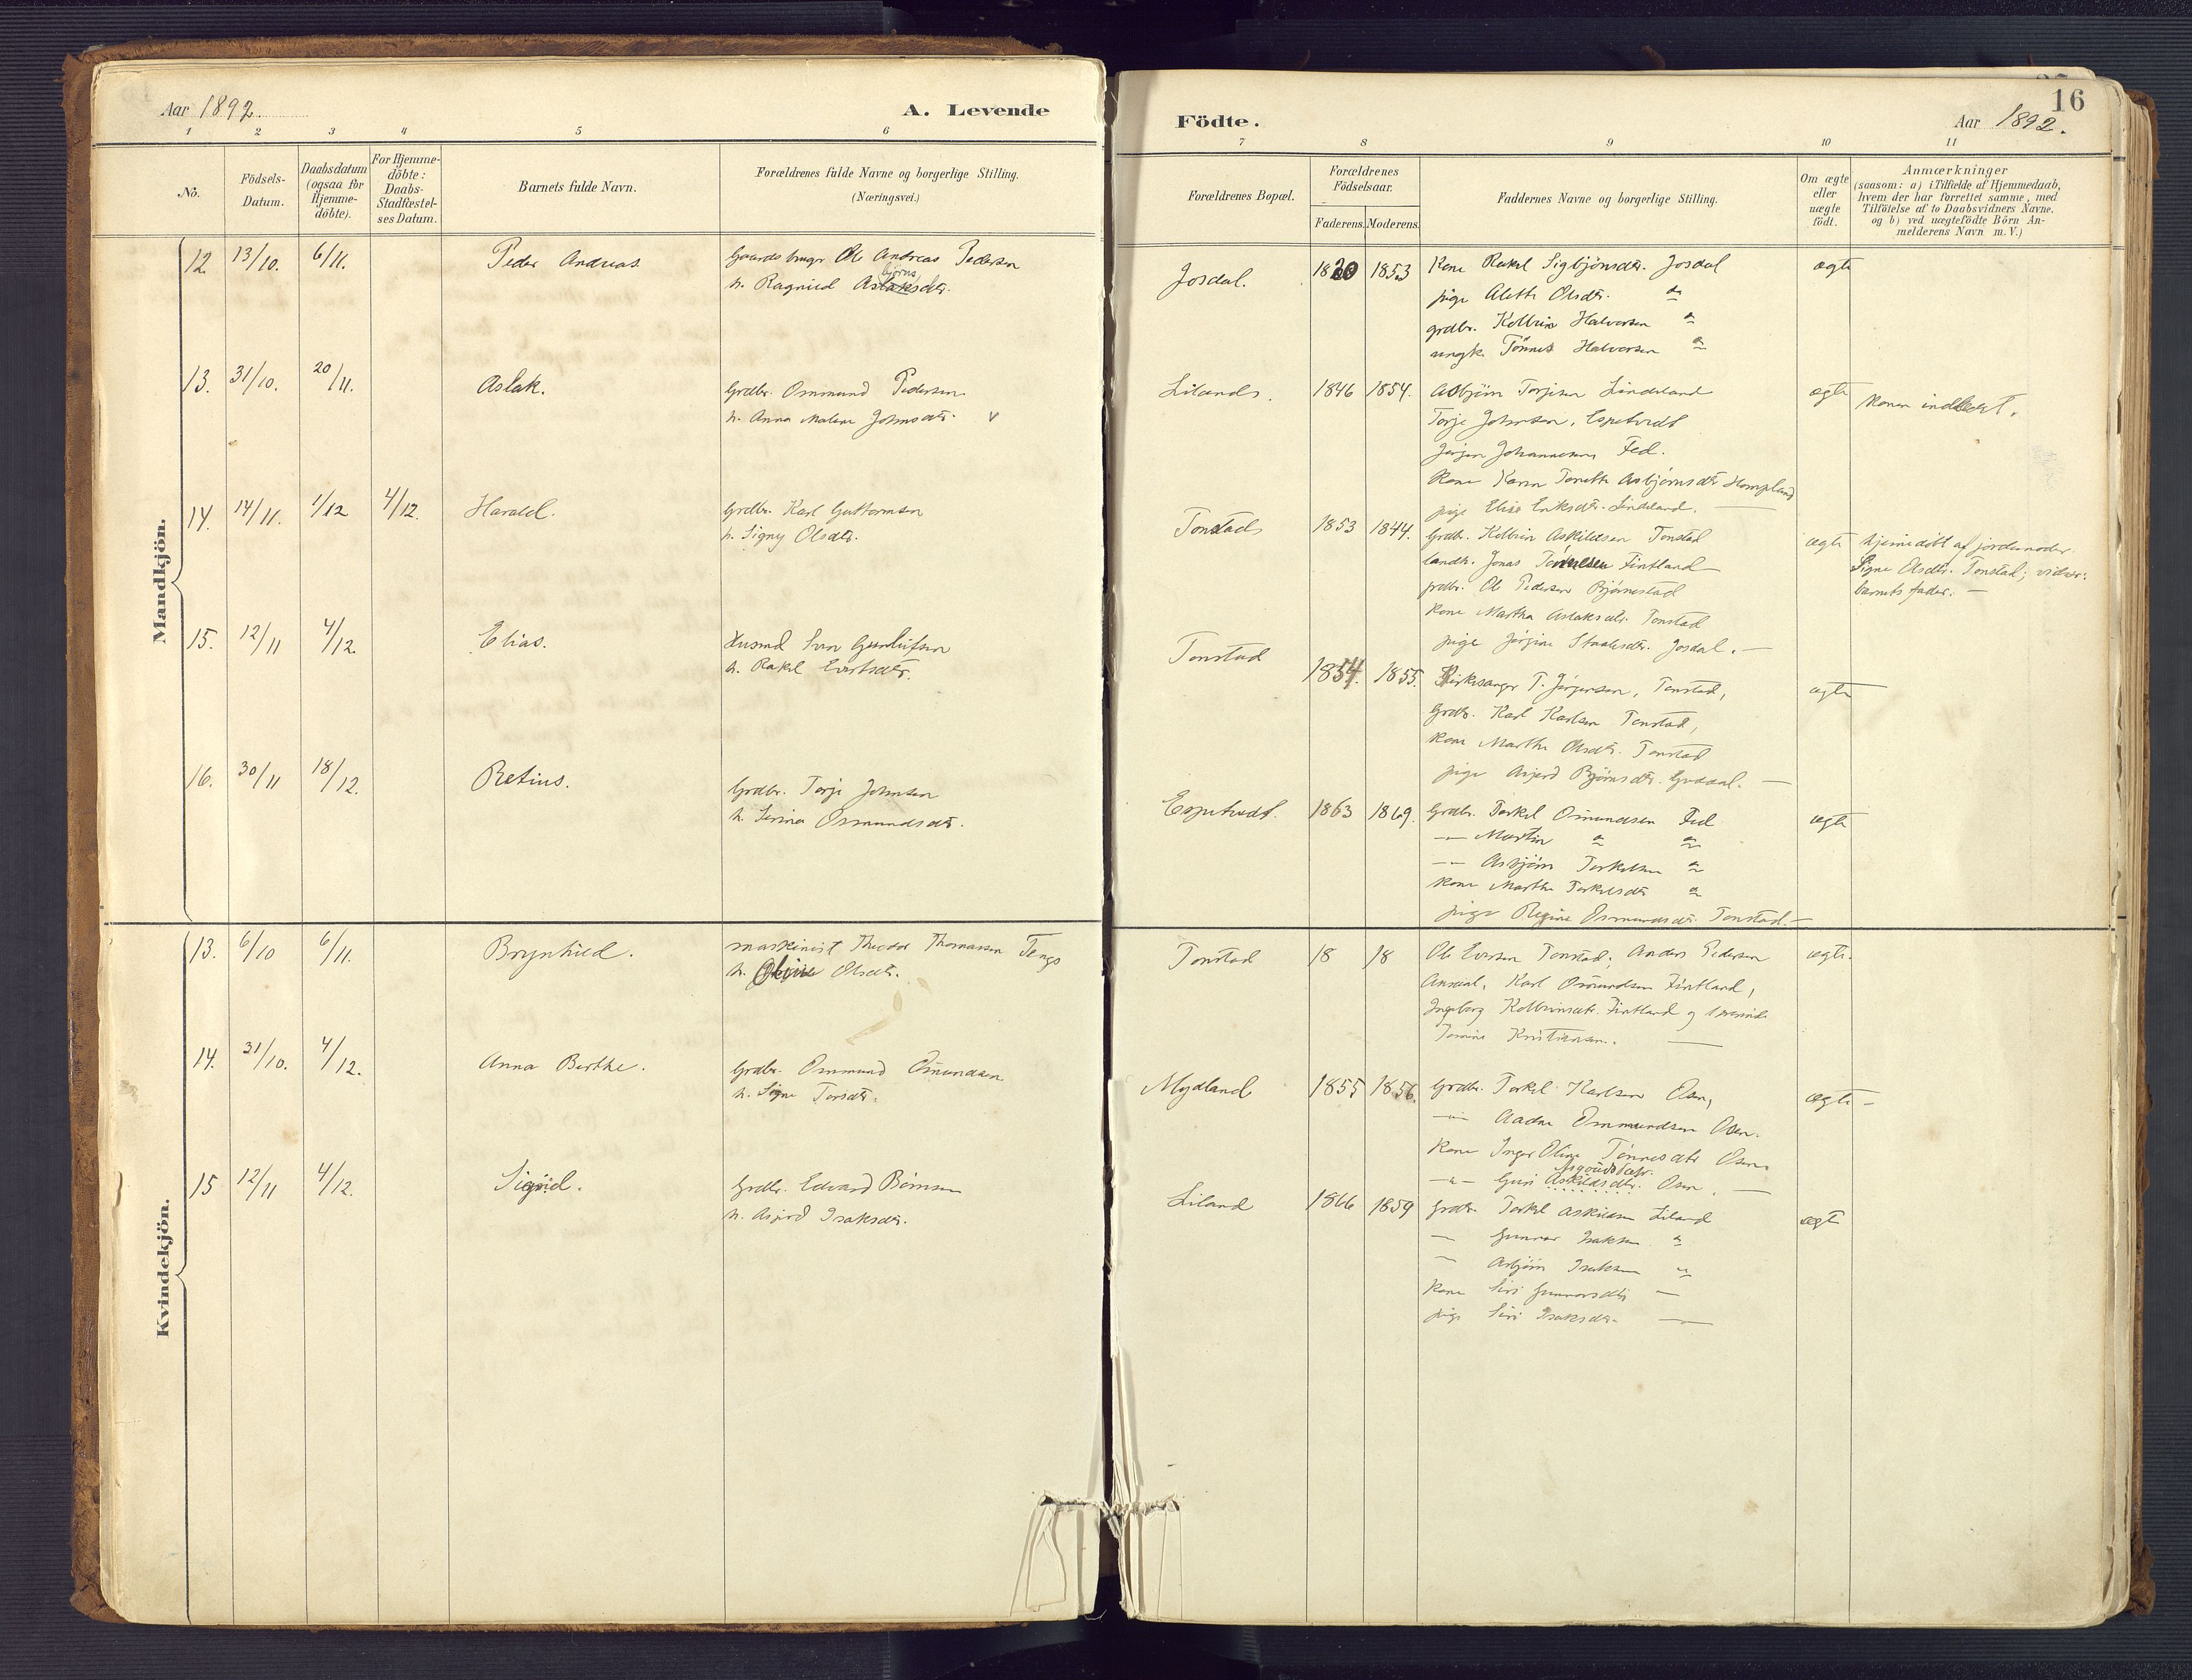 Aar 1892.
A. Levende
1 2 3 4 5 6
No.
Födsels-Datum.
Daabsdatum (ogsaa for Hjemme-döbte).
For Hjemme-döbte: Daabs-Stadfæstel-ses Datum.
Barnets fulde Navn.
Forældrenes fulde Navne og borgerlige Stilling.
(Næringsvei.)
Mandkjön.
12. 13/10. 6/11. Peder Andreas. Gaardsbruger Ole Andreas Pedersen
björns
h. Ragnild Aslaksdtr.
13. 31/10. 20/11. Aslak. Grdbr. Ommund Pedersen
h. Anna Malene Johnsdtr. v
14. 14/11. 1/12 4/12. Harald. Grdbr. Karl Guttormsen
h. Signy Olsdtr.
15. 12/11 4/12. Elias. Husmd Sven Gunlufsen
h. Rakel Evertsdtr.
16. 30/11 18/12. Retius. Grdbr. Torje Johnsen
h. Serina Osmundsdtr.
Kvindekjön.
13. 6/10 6/11. Brynhild. maskinist Theodor Thomassen Tengs
h. Oline Olsdtr.
14. 31/10. 4/12. Anna Berthe. Grdbr. Ommund Omundsen
h. Signe Torsdtr.
15 12/11 4/12. Sigrid. Grdbr. Edvard Börnsen
h. Asjerd Isaksdtr.
16
Födte.
Aar 1892.
7 8 9 10 11
Forældrenes Bopæl.
Forældrenes Födselsaar.
Faderens. Moderens.
Faddernes Navne og borgerlige Stilling.
Om ægte eller uægte födt.
Anmærkninger
(saasom: a) i Tilfælde af Hjemmedaab,
hvem der har forrettet samme, med
Tilföielse af to Daabsvidners Navne.
og b) ved uægtefödte Börn An-
melderens Navn m. V.)
Josdal. 1820 1853 Kone Rakel Sigbjönsdtr. Josdal ægte
pige Alette Olsdtr. do
grdbr. Kolbein Halvorsen do
ungk. Tönnes Halvorsen do
Lilands. 1846 1854. Asbjörn Torjesen Lindeland ægte konen indledet.
Torje Johnsen, Espetvedt
Jörgen Johannesen Fed.
Kone Karen Tonette Asbjörnsdtr Hompland
pige Elise Eriksdtr. Lindeland.
Tonstads 1853 1844. Grdbr. Kolbein Askildsen Tonstad ægte hjemmedöbt af jordemoder
landh. Jonas Fintland Signe Olsdtr. Tonstad; vidner:
grdbr. Ole Pedersen Bjørnestad barnets fader. —
kone Martha Aslaksdtr. Tonstad
pige Jörgine Staalesdtr. Josdal. —
Tonstad 1854. 1855. Kirkesanger T. Jörgensen, Tonstad, ægte
Grdbr. Karl Karlsen Tonstad,
kone Marthe Olsdtr. Tonstad
pige Asjerd Bjørnsdtr. Guddal. —
Espetvedt. 1863 1869. Grdbr. Torkel Omundsen Fed ægte
— Martin do do
— Asbjörn Torkelsen do
kone Marthe Torkelsdtr do
pige Regine Osmundsdtr. Tonstad. —
Tonstad 18 18 Ole Evertsen Tonstad; Anders Pedersen ægte.
Ansdal, Karl Osmundsen Fintland,
Ingeborg Kolbeinsdtr. Fintland og
Kristiansen. —
Mydland 1855 1856. Grdbr. Torkel Karlsen Osen, ægte —
— Aadne Ommundsen Osen.
Kone Inger Oline Tönnesdtr Osen
Asgautsdatr.
— Guri Askildsdtr. Osen. —
Liland 1866 1859 Grdbr. Torkel Askildsen Liland ægte
— Gunnar Isaksen do
— Asbjörn Isaksen do
Kone Siri Gunnarsdtr —
pige Siri Isaksdtr. —